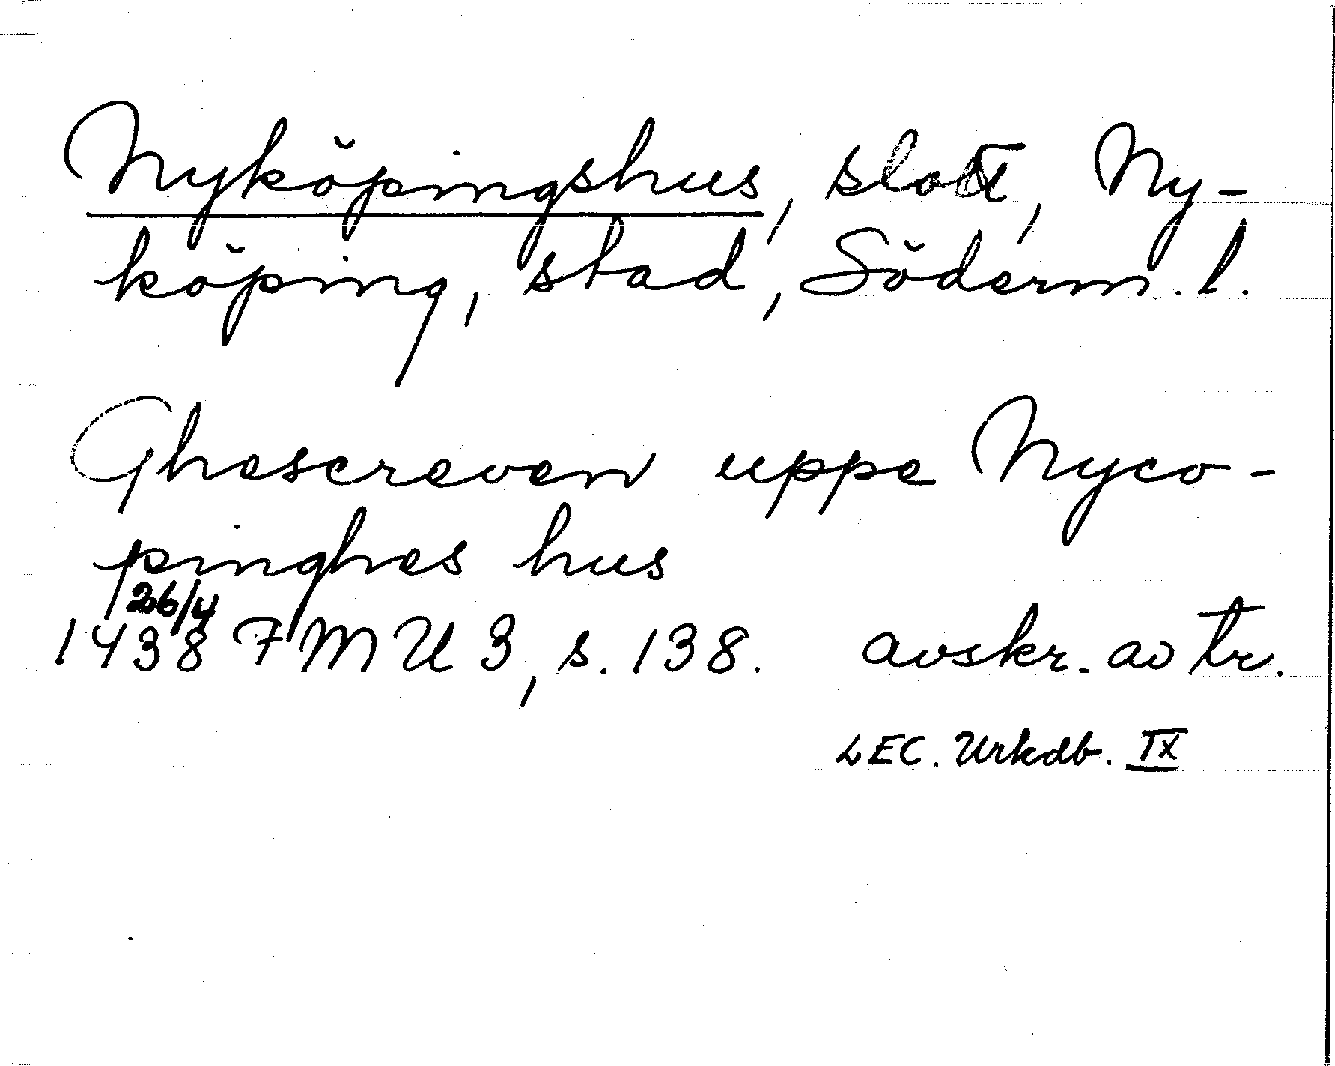 Nyköpingshus, slott, Ny-
köping, stad, Söderm. l.
Ghescreven uppe Nyco-
pinghes hus
26/4
1438 FMU 3, s. 138. avskr. av tr.
LEC. Urkdb. IX